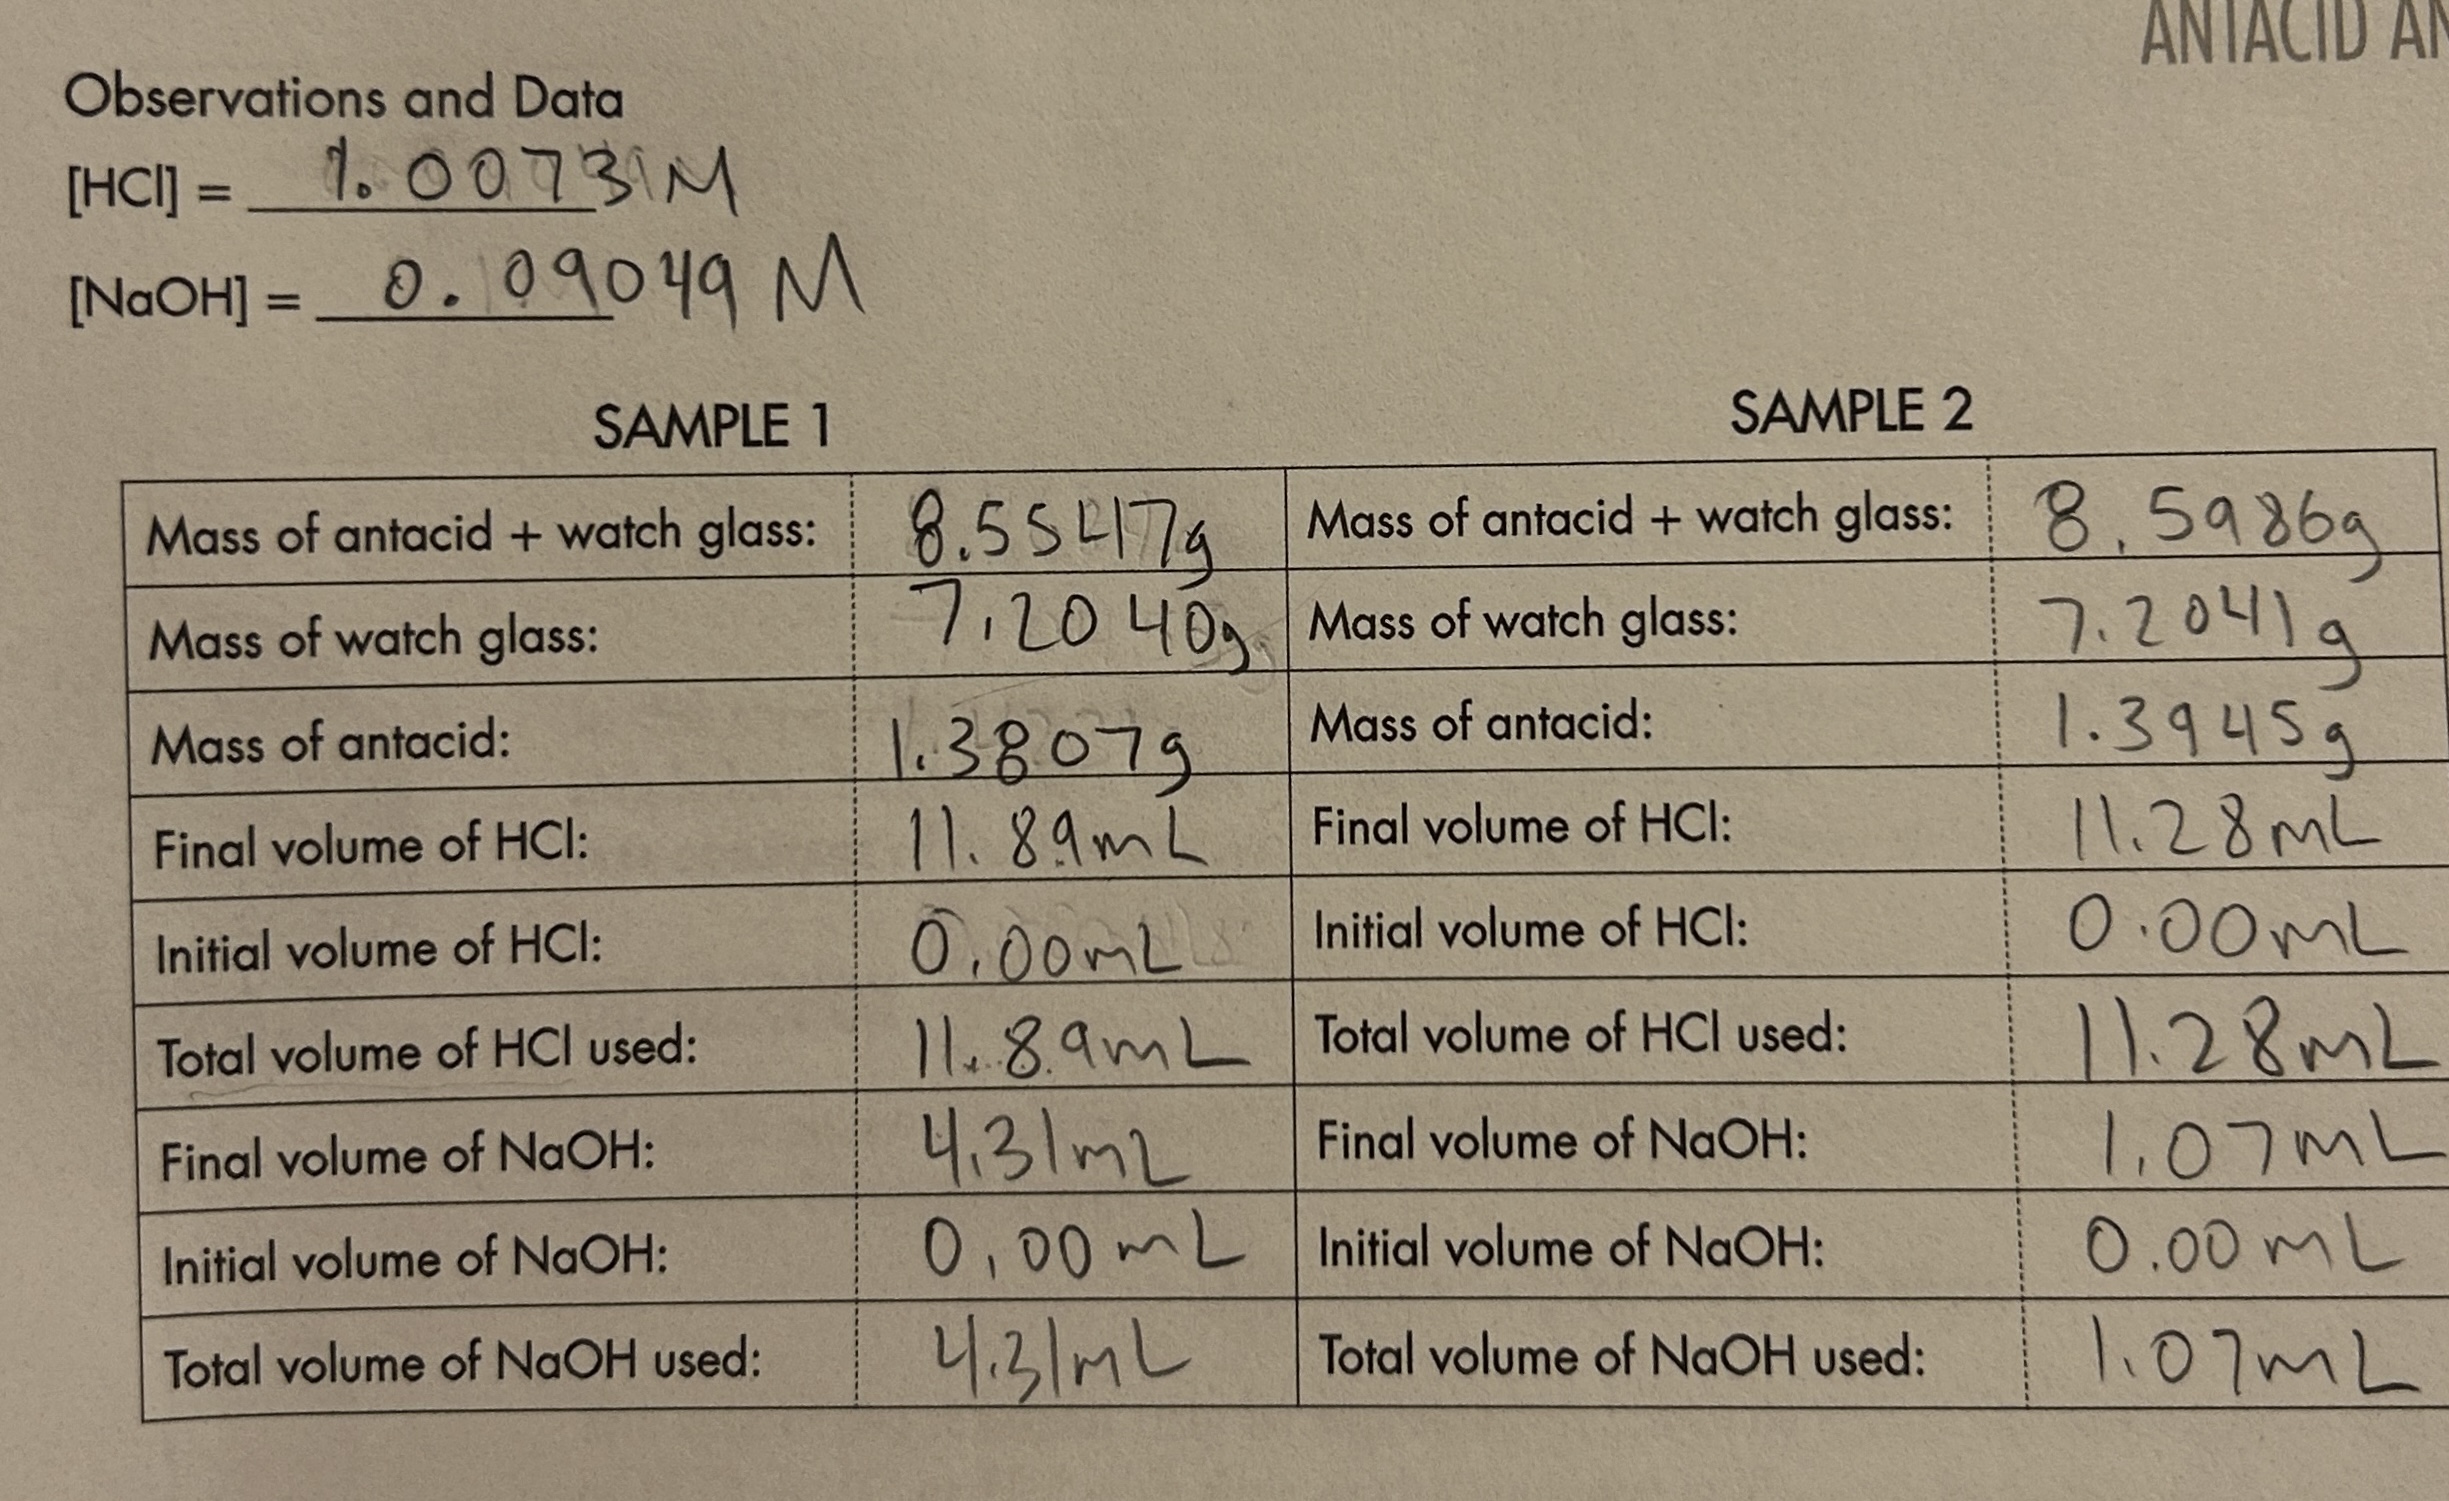 ANTACID AN
Observations and Data
[HCl] = 1.0073 M
[NaOH] = 0.09049 M
SAMPLE 1 SAMPLE 2
Mass of antacid + watch glass: 8.5547g Mass of antacid + watch glass: 8.5986g
Mass of watch glass: 7.2040g Mass of watch glass: 7.2041g
Mass of antacid: 1.3807g Mass of antacid: 1.3945g
Final volume of HCl: 11.89mL Final volume of HCl: 11.28mL
Initial volume of HCl: 0.00mL Initial volume of HCl: 0.00mL
Total volume of HCl used: 11.89mL Total volume of HCl used: 11.28mL
Final volume of NaOH: 4.31mL Final volume of NaOH: 1.07mL
Initial volume of NaOH: 0.00mL Initial volume of NaOH: 0.00mL
Total volume of NaOH used: 4.31mL Total volume of NaOH used: 1.07mL